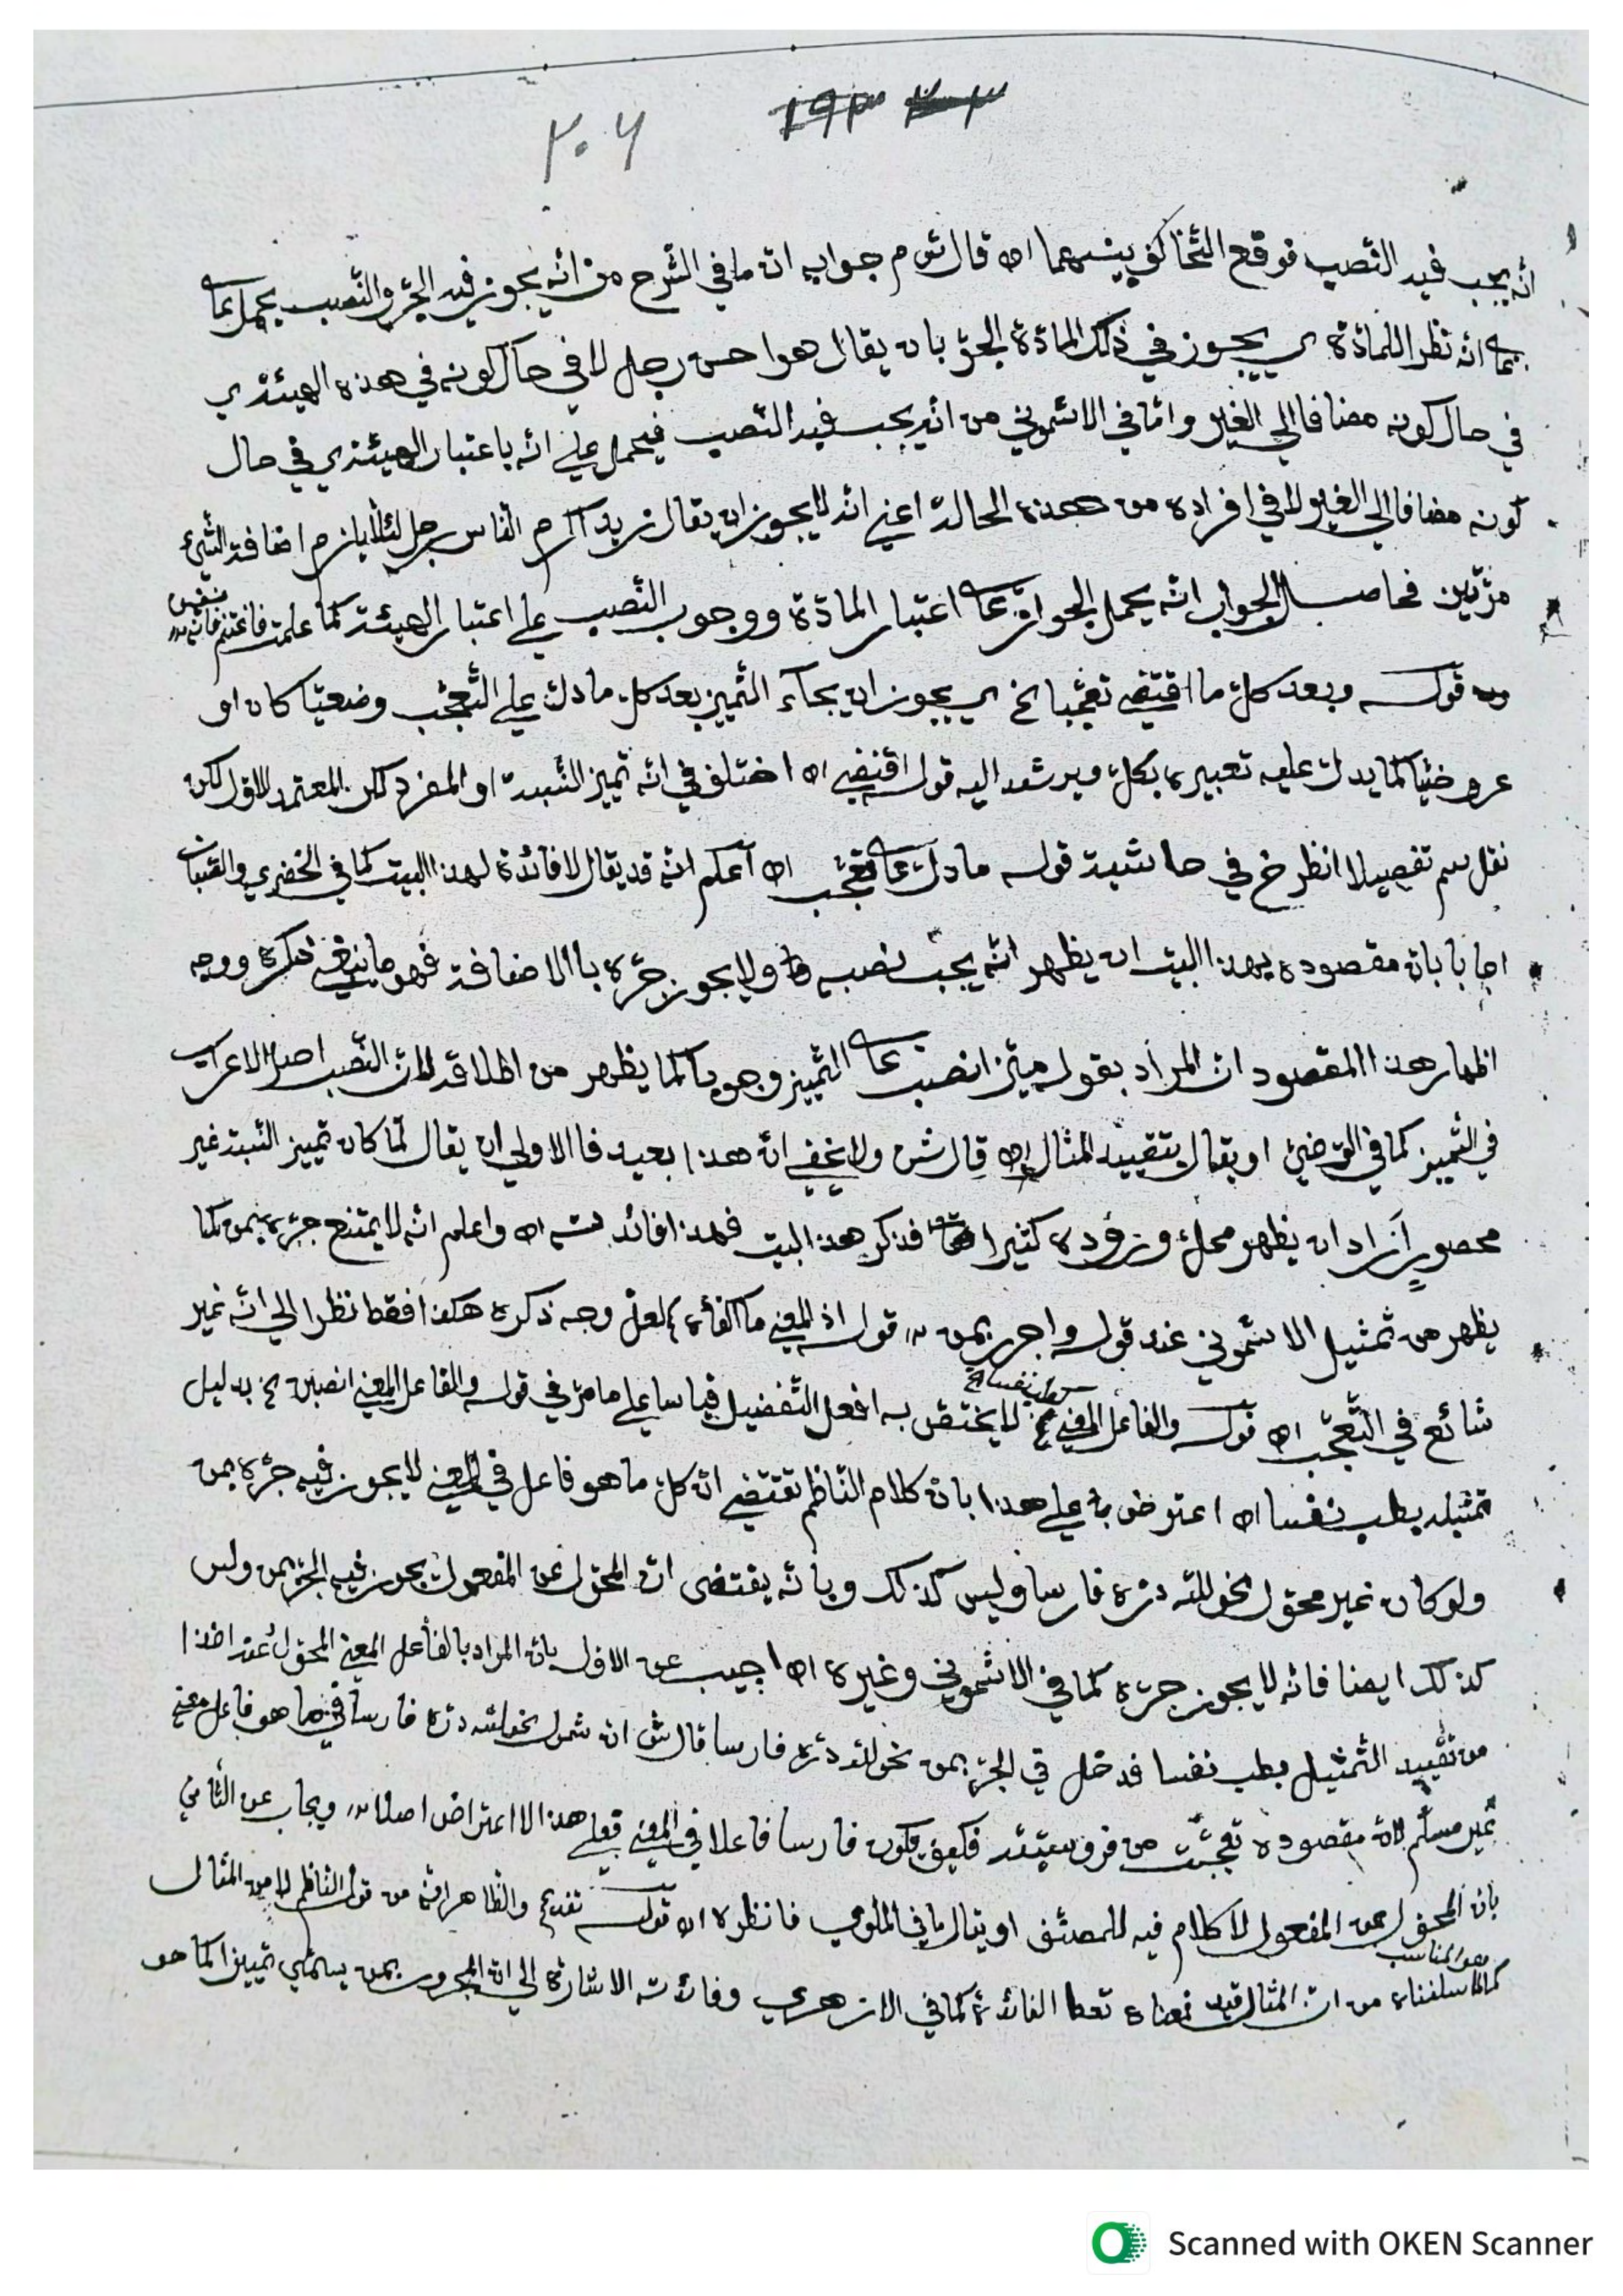 ٢٠٦
انّه يجب فيه النّصب فوقع التّخالف بينهما اه قال ش م جوابه انّ ما في الشّرح من انّه يجوز فيه الجرّ والنّصب يحمل على
انّه نظرا للمادّة ي يجوز في ذلك المادّة الجرّ بان يقال هو احسن رجل لا في حال كونه في هذه الهيئة ي
في حال كونه مضافا الي الغير وامّا في الاشموني من انّه يجب فيه النّصب فيحمل علي انّه باعتبار الهيئة ي في حال
كونه مضافا الي الغير لا في افراده من هذه الحالة اعني انّه لا يجوز ان يقال زيد اكرم النّاس رجل لئلّا يلزم اضافة الشّئ
مرّتين فحاصل الجواب انّه يحمل الجواز على اعتبار المادّة ووجوب النّصب علي اعتبار الهيئة كما علمت فاغتنم فانّه نفيس
قوله وبعد كلّ ما اقتضي تعجّبا الخ ي يجوز ان يجاء التّمييز بعد كلّ ما دلّ علي التّعجّب وضعيّا كان او
عروضيّا كما يدلّ عليه تعبيره بكلّ ويرشد اليه قوله اقتضي اه اختلف في انّه تمييز النّسبة او المفرد لكن المعتمد الاول لكن
نقل سم تفصيلا انظر خ في حاشية قوله ما دلّ على تعجّب اه اعلم انّه قد يقال لا فائدة لهذا البيت كما في الخضري والصّبان
اجابا بانّ مقصوده بهذا البيت ان يظهر انّه يجب نصبه ولا يجوز جرّه باالاضافة فهو ما ذكره ووجه
اظهار هذا المقصود انّ المراد بقوله ميّز انصب على التّمييز وجوبا كما يظهر من اطلاقه لانّ النّصب اصل الاعراب
في التّمييز كما في التوضيح او يقال بتقييد المثال اه قال ش ولا يخفي انّ هذا بعيد فاالاولي ان يقال لمّا كان تمييز النّسبة غير
محصور اراد ان يظهر محلّ وروده كثيرا فذكر هذا البيت فهذا فائدته اه واعلم انّه لا يمتنع جرّه بمن كما
يظهر من تمثيل الاشموني عند قوله واجرر بمن قوله اذ المعني ما اكفأه لعلّ وجه ذكره هكذا فقط نظرا الي انّه غير
شائع في التّعجّب اه قوله والفاعل المعني الخ لا يختصّ به افعل التّفضيل قياسا علي ما مرّ في قوله والفاعل المعني انصبن الخ بدليل
تمثيله بطب نفسا اه اعترض علي هذا بانّ كلام النّاظم تقتضي انّ كلّ ما هو فاعل في المعني لا يجوز فيه جرّه بمن
ولو كان غير محوّل نحو للّه درّه فارسا وليس كذلك وبانّه يقتضى انّ المحوّل عن المفعول يجوز فيه الجرّ بمن وليس
كذلك ايضا فانّه لا يجوز جرّه كما في الاشموني وغيره اه اجيب عن الاوّل بانّ المراد بالفاعل المعني المحوّل عنه اخذا
من تقييد التّمثيل بطب نفسا فدخل في الجرّ بمن نحو للّه درّه فارسا قال ش انّ شمول نحو للّه درّه فارسا فيما هو فاعل معني
غير مسلّم لانّ مقصوده تعجّبت من فروسيّته فكيف يكون فارسا فاعلا في المعني فعلي هذا لا اعتراض اصلا ويجاب عن الثّاني
بانّ المحوّل عن المفعول لا كلام فيه للمصنّف او يقال ما في الملّوي فانظره اه قوله تفد الخ والظاهر انّه من قول النّاظم لا من المثال
كما اسلفناه من انّ المثال قيد فمعناه تعط الفائدة كما في الازهري وفائدته الاشارة الي انّ المجرور بمن يسمّي تمييزا كما هو